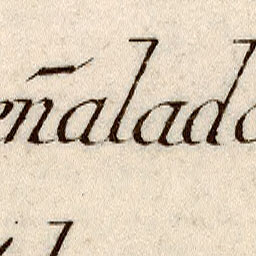 eñalado